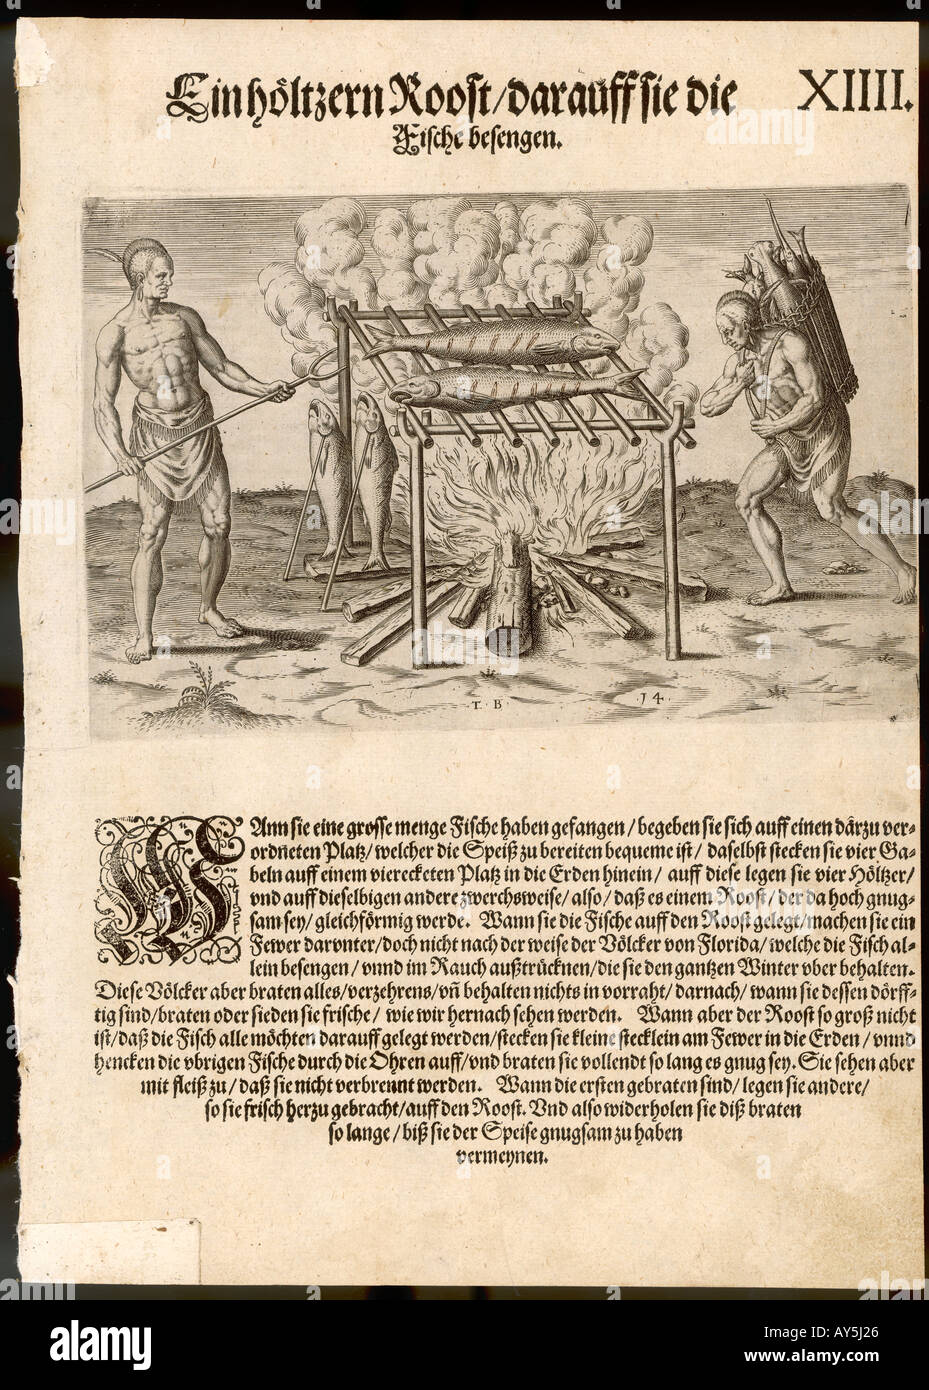 Ein höltzern Roost/darauff sie die XIIII.
Fische besengen.
T. B
14
WAnn sie eine grosse menge Fische haben gefangen / begeben sie sich auff einen dârzu ver-
ordneten Platz/ welcher die Speiß zu bereiten bequeme ist / daselbst stecken sie vier Ga-
beln auff einem viereckten Platz in die Erden hinein / auff diese legen sie vier Höltzer/
vnd auff dieselbigen andere zwerchsweise/ also / daß es einem Roost/ der da hoch gnug-
sam sey/ gleichförmig werde. Wann sie die Fische auff den Roost gelegt/machen sie ein
Fewer darvnter/doch nicht nach der weise der Völcker von Florida/ welche die Fisch al-
lein besengen / vnnd im Rauch außtrücknen/die sie den gantzen Winter vber behalten.
Diese Völcker aber braten alles/verzehrens/vñ behalten nichts in vorraht/ darnach/ wann sie dessen dörff-
tig sind/braten oder sieden sie frische / wie wir hernach sehen werden. Wann aber der Roost so groß nicht
ist/daß die Fisch alle möchten darauff gelegt werden/stecken sie kleine stecklein am Fewer in die Erden / vnnd
hencken die vbrigen Fische durch die Ohren auff/vnd braten sie vollendt so lang es gnug sey. Sie sehen aber
mit fleiß zu / daß sie nicht verbrennt werden. Wann die ersten gebraten sind/ legen sie andere/
so sie frisch herzu gebracht/auff den Roost. Vnd also widerholen sie diß braten
so lange / biß sie der Speise gnugsam zu haben
vermeynen.
alamy
Image ID: AY5J26
www.alamy.com